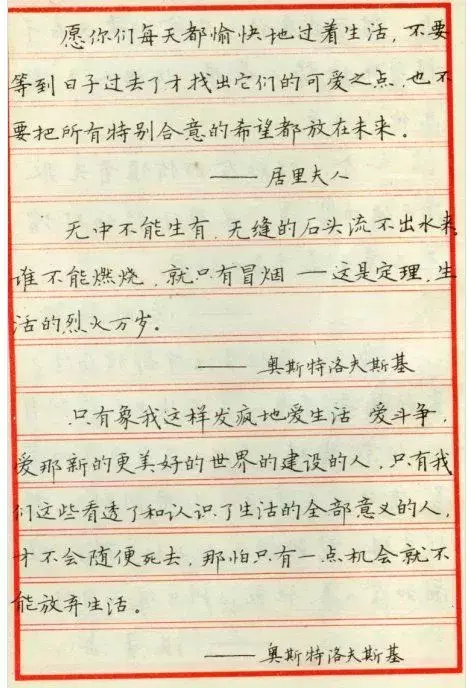 愿你们每天都愉快地过着生活，不要
等到日子过去了才找出它们的可爱之点，也不
要把所有特别合意的希望都放在未来。
——居里夫人
无中不能生有，无缝的石头流不出水来。
谁不能燃烧，就只有冒烟——这是定理，生
活的烈火万岁。
——奥斯特洛夫斯基
只有象我这样发疯地爱生活 爱斗争，
爱那新的更美好的世界的建设的人，只有我
们这些看透了和认识了生活的全部意义的人，
才不会随便死去，那怕只有一点机会就不
能放弃生活。
——奥斯特洛夫斯基